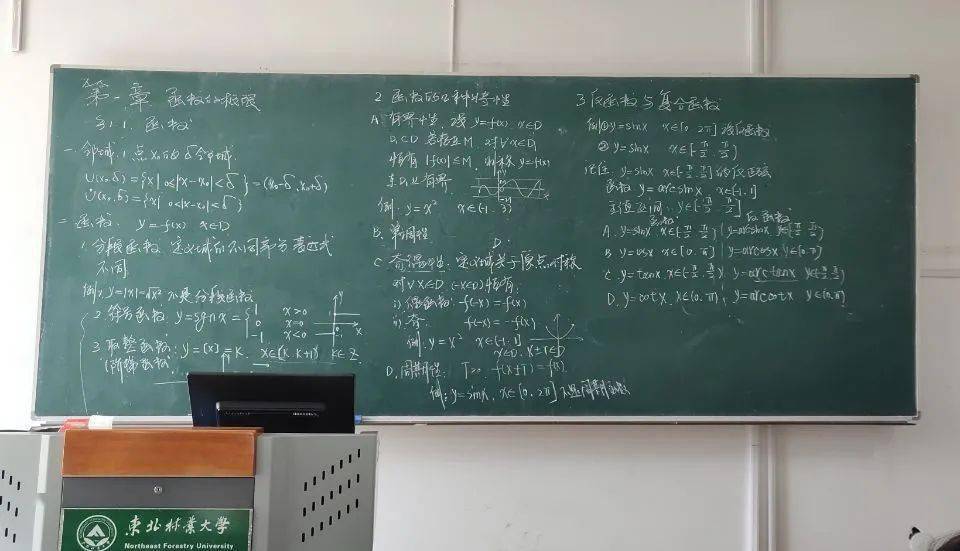 第一章 函数的极限
§1.1. 函数
一. 邻域. 1. 点x₀的δ邻域.
U(x₀,δ)={x| 0≤|x-x₀|<δ}=(x₀-δ, x₀+δ)
Ů(x₀,δ)={x| 0<|x-x₀|<δ}
二. 函数. y=f(x) x∈D
1. 分段函数. 定义域的不同部分表达式
不同.
例: y=|x|=√x² 不是分段函数
2. 符号函数. y=sgn x={1 x>0
0 x=0
-1 x<0
3. 取整函数: y=[x]=K. x∈[K. K+1) K∈Z.
(阶梯函数)
2. 函数的四种特性
A. 有界性. 设 y=f(x) x∈D
D₁⊂D 若存在M. 对∀x∈D₁
恒有 |f(x)|≤M. 则称 y=f(x)
在D₁上有界.
例. y=x² x∈(-1. 3)
B. 单调性
D.
C 奇偶性. 定义域关于原点对称
对∀x∈D (-x∈D)恒有.
i) 偶函数. f(-x)=f(x)
ii) 奇 f(-x)=-f(x)
例. y=x² x∈[-1. 1]
x∈D. x±T∈D
D. 周期性. T>0 f(x±T)=f(x).
例: y=sinx. x∈[0. 2π] 不是周期函数
3 反函数与复合函数
例①y=sinx x∈[0. 2π] 没反函数
② y=sinx x∈[-π/2. π/2)
记住. y=sinx x∈[-π/2. π/2]的反函数
函数 y=arcsinx. x∈[-1. 1]
主值区间. y∈[-π/2 π/2]
函数 反函数
A. y=sinx. x∈[-π/2 π/2] y=arcsinx y∈[-π/2 π/2]
B y=cosx x∈[0. π] y=arccosx y∈[0.π]
C. y=tanx x∈(-π/2. π/2) y=arctanx y∈(-π/2 π/2)
D. y=cotx. x∈(0. π) y=arccotx y∈(0.π)
東北林業大学
Northeast Forestry University